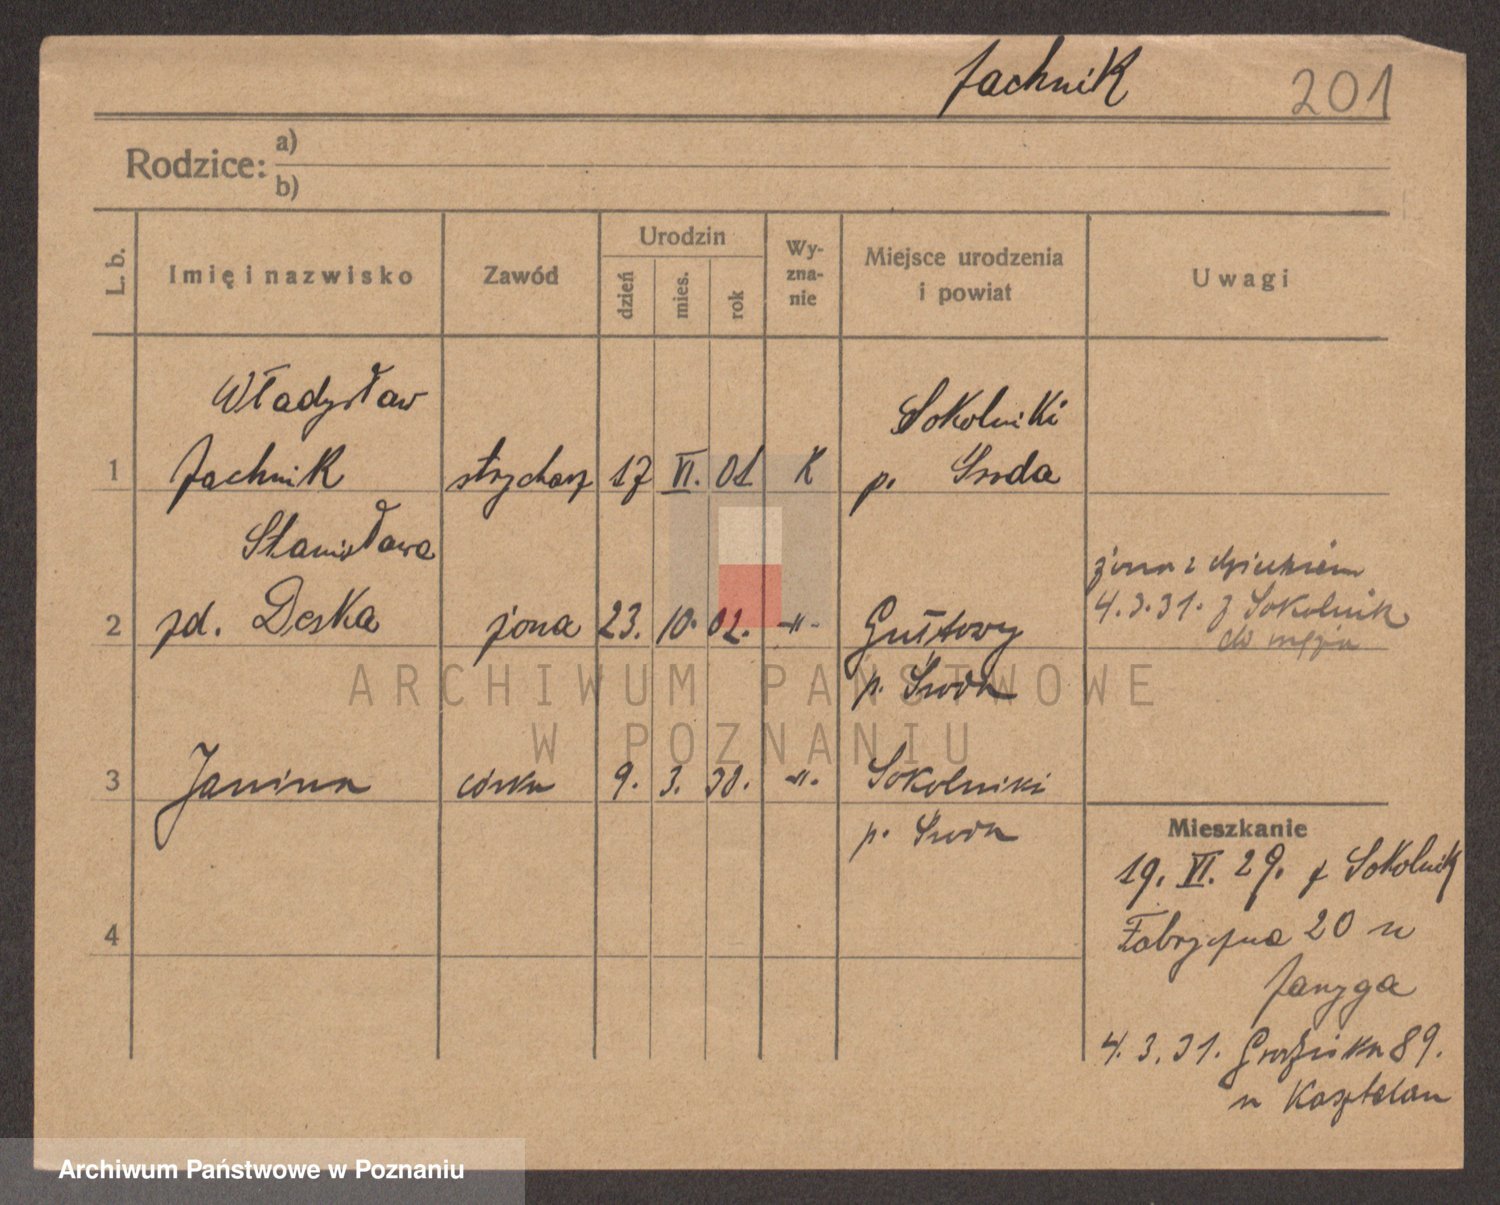 Jachnik 201
Rodzice: a)
b)
L. b. Imię i nazwisko Zawód Urodzin dzień mies. rok Wy-zna-nie Miejsce urodzenia i powiat Uwagi
Władysław Sokolniki
1 Jachnik strycharz 17 VI. 01 K p. Środa
Stanisława
żona z dzieckiem
2 zd. Deska żona 23. 10. 02. -"- Gułtowy 4.3.31. z Sokolnik
do męża
p. Środa
ARCHIWUM PAŃSTWOWE
W POZNANIU
3 Janina córka 9. 3. 30. -"- Sokolniki
p. Środa
Mieszkanie
19. VI. 29. z Sokolnik
4 Fabryczna 20 u
Janyga
4. 3. 31. Grodziska 89.
u Kasztelan
Archiwum Państwowe w Poznaniu